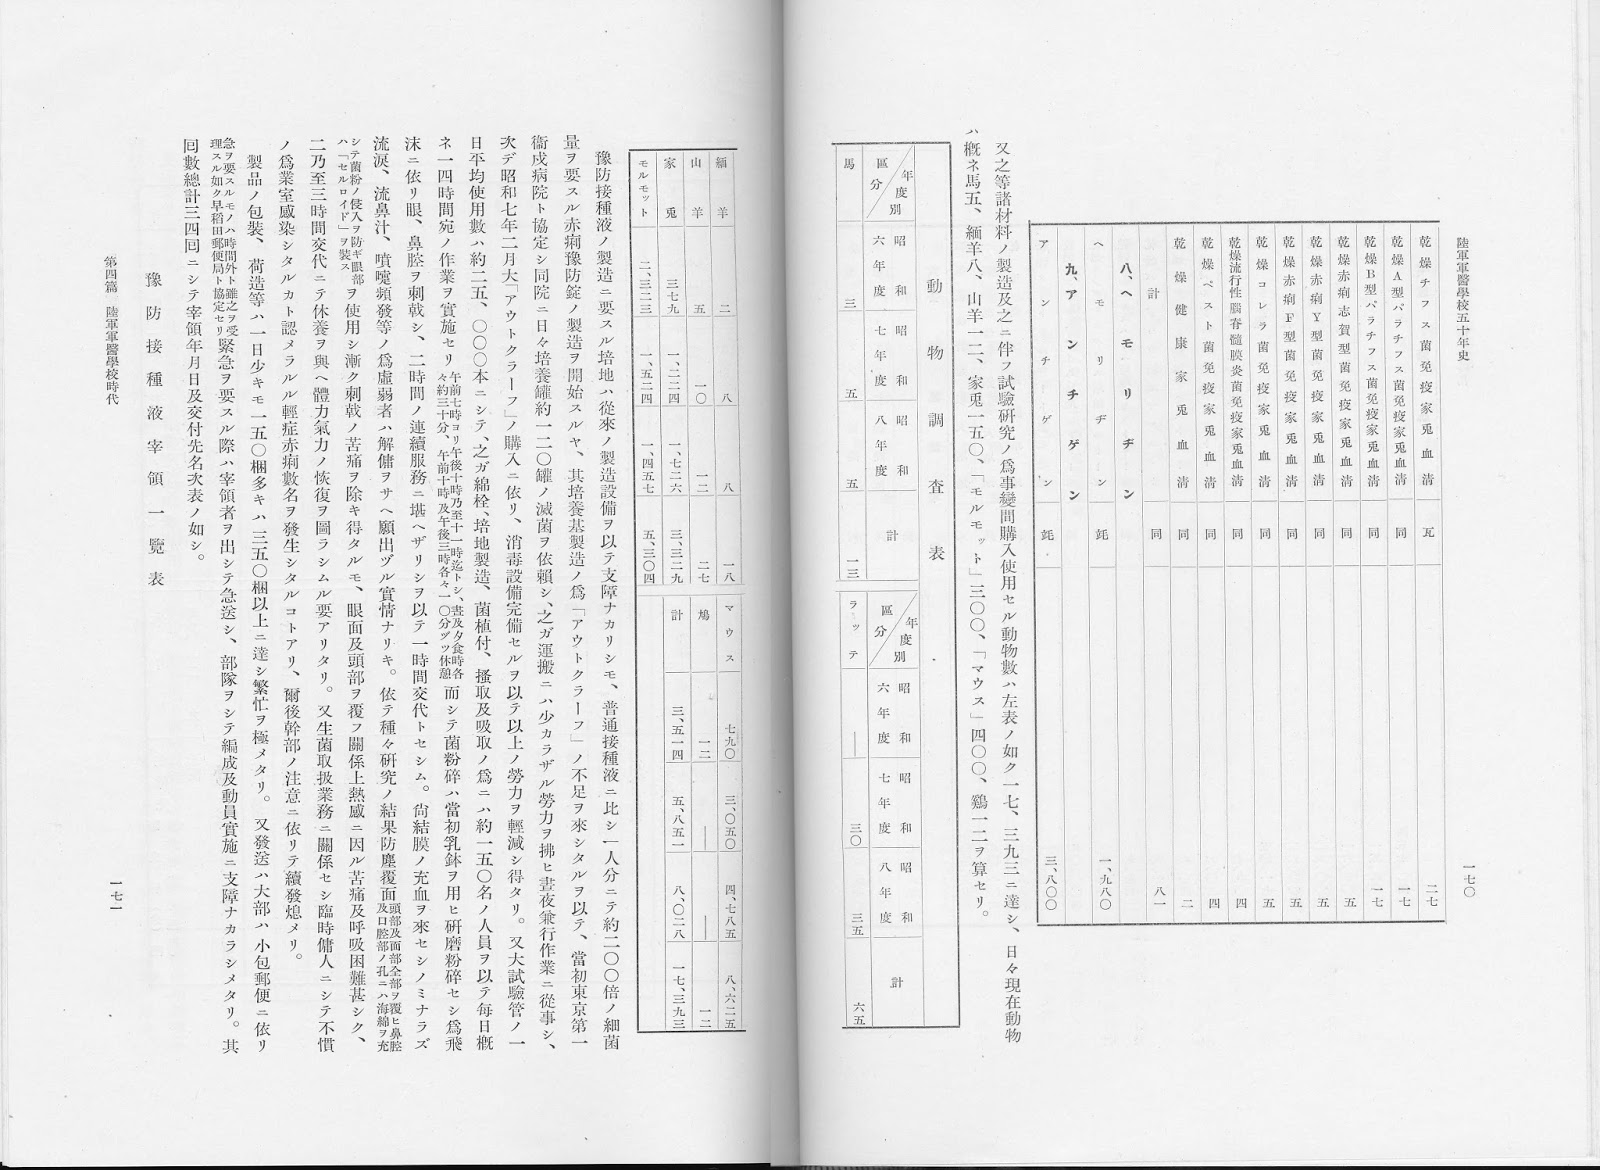 陸軍軍醫學校五十年史
一七〇
乾燥チフス菌免疫家兎血清 瓦 二七
乾燥A型パラチフス菌免疫家兎血清 同 一七
乾燥B型パラチフス菌免疫家兎血清 同 一七
乾燥赤痢志賀型菌免疫家兎血清 同 五
乾燥赤痢Y型菌免疫家兎血清 同 五
乾燥赤痢F型菌免疫家兎血清 同 五
乾燥コレラ菌免疫家兎血清 同 五
乾燥流行性腦脊髓膜炎菌免疫家兎血清 同 四
乾燥ペスト菌免疫家兎血清 同 四
乾燥健康家兎血清 同 二
計 同 八一
八、ヘモリヂン
ヘモリヂン 竓 一、九八〇
九アンチゲン
アンチゲン 竓 三、八〇〇
又之等諸材料ノ製造及之ニ伴フ試驗硏究ノ爲事變間購入使用セル動物數ハ左表ノ如ク一七、三九三ニ達シ、日々現在動物
ハ槪ネ馬五、緬羊八、山羊一二、家兎一五〇、「モルモット」三〇〇、「マウス」四〇〇、鷄一二ヲ算セリ。
動物調査表
年度別 區分 昭和六年度 昭和七年度 昭和八年度 計
馬 三 五 五 一三
年度別 區分 昭和六年度 昭和七年度 昭和八年度 計
ラッテ ― 三〇 三五 六五
緬羊 二 八 八 一八
山羊 五 一〇 一二 二七
家兎 三七九 一、二二四 一、七二六 三、三二九
モルモット 二、三二三 一、五二四 一、四五七 五、三〇四
マウス 七九〇 三、〇五〇 四、七八五 八、六二五
鳩 一二 ― ― 一二
計 三、五一四 五、八五一 八、〇二八 一七、三九三
豫防接種液ノ製造ニ要スル培地ハ從來ノ製造設備ヲ以テ支障ナカリシモ、普通接種液ニ比シ一人分ニテ約二〇〇倍ノ細菌
量ヲ要スル赤痢豫防錠ノ製造ヲ開始スルヤ、其培養基製造ノ爲「アウトクラーフ」ノ不足ヲ來シタルヲ以テ、當初東京第一
衞戍病院ト協定シ同院ニ日々培養罐約一二〇罐ノ滅菌ヲ依賴シ、之ガ運搬ニハ少カラザル勞力ヲ拂ヒ晝夜兼行作業ニ從事シ、
次デ昭和七年二月大「アウトクラーフ」ノ購入ニ依リ、消毒設備完備セルヲ以テ以上ノ勞力ヲ輕減シ得タリ。又大試驗管ノ一
日平均使用數ハ約二五、〇〇〇本ニシテ、之ガ綿栓、培地製造、菌植付、搔取及吸取ノ爲ニハ約一五〇名ノ人員ヲ以テ每日槪
ネ一四時間宛ノ作業ヲ實施セリ 午前七時ヨリ午後十時乃至十一時迄トシ、晝及夕食時各々約三十分、午前十時及午後三時各々一〇分ヅツ休憩 而シテ菌粉碎ハ當初乳鉢ヲ用ヒ硏磨粉碎セシ爲飛
沫ニ依リ眼、鼻腔ヲ刺戟シ、二時間ノ連續服務ニ堪ヘザリシヲ以テ一時間交代トセシム。尙結膜ノ充血ヲ來セシノミナラズ
流淚、流鼻汁、噴嚏頻發等ノ爲虛弱者ハ解傭ヲサヘ願出ヅル實情ナリキ。依テ種々硏究ノ結果防塵覆面 頭部及面部全部ヲ覆ヒ鼻腔及口腔部ノ孔ニハ海綿ヲ充
シテ菌粉ノ侵入ヲ防ギ眼部ハ「セルロイド」ヲ裝ス ヲ使用シ漸ク刺戟ノ苦痛ヲ除キ得タルモ、眼面及頭部ヲ覆フ關係上熱感ニ因ル苦痛及呼吸困難甚シク、
二乃至三時間交代ニテ休養ヲ與ヘ體力氣力ノ恢復ヲ圖ラシムル要アリタリ。又生菌取扱業務ニ關係セシ臨時傭人ニシテ不慣
ノ爲業室感染シタルカト認メラルル輕症赤痢數名ヲ發生シタルコトアリ、爾後幹部ノ注意ニ依リテ續發熄メリ。
製品ノ包裝、荷造等ハ一日少キモ一五〇梱多キハ三五〇梱以上ニ達シ繁忙ヲ極メタリ。又發送ハ大部ハ小包郵便ニ依リ
急ヲ要スルモノハ時間外ト雖之ヲ受理スル如ク早稻田郵便局ト協定セリ 緊急ヲ要スル際ハ宰領者ヲ出シテ急送シ、部隊ヲシテ編成及動員實施ニ支障ナカラシメタリ。其
囘數總計三四囘ニシテ宰領年月日及交付先名次表ノ如シ。
豫防接種液宰領一覽表
第四篇 陸軍軍醫學校時代
一七一